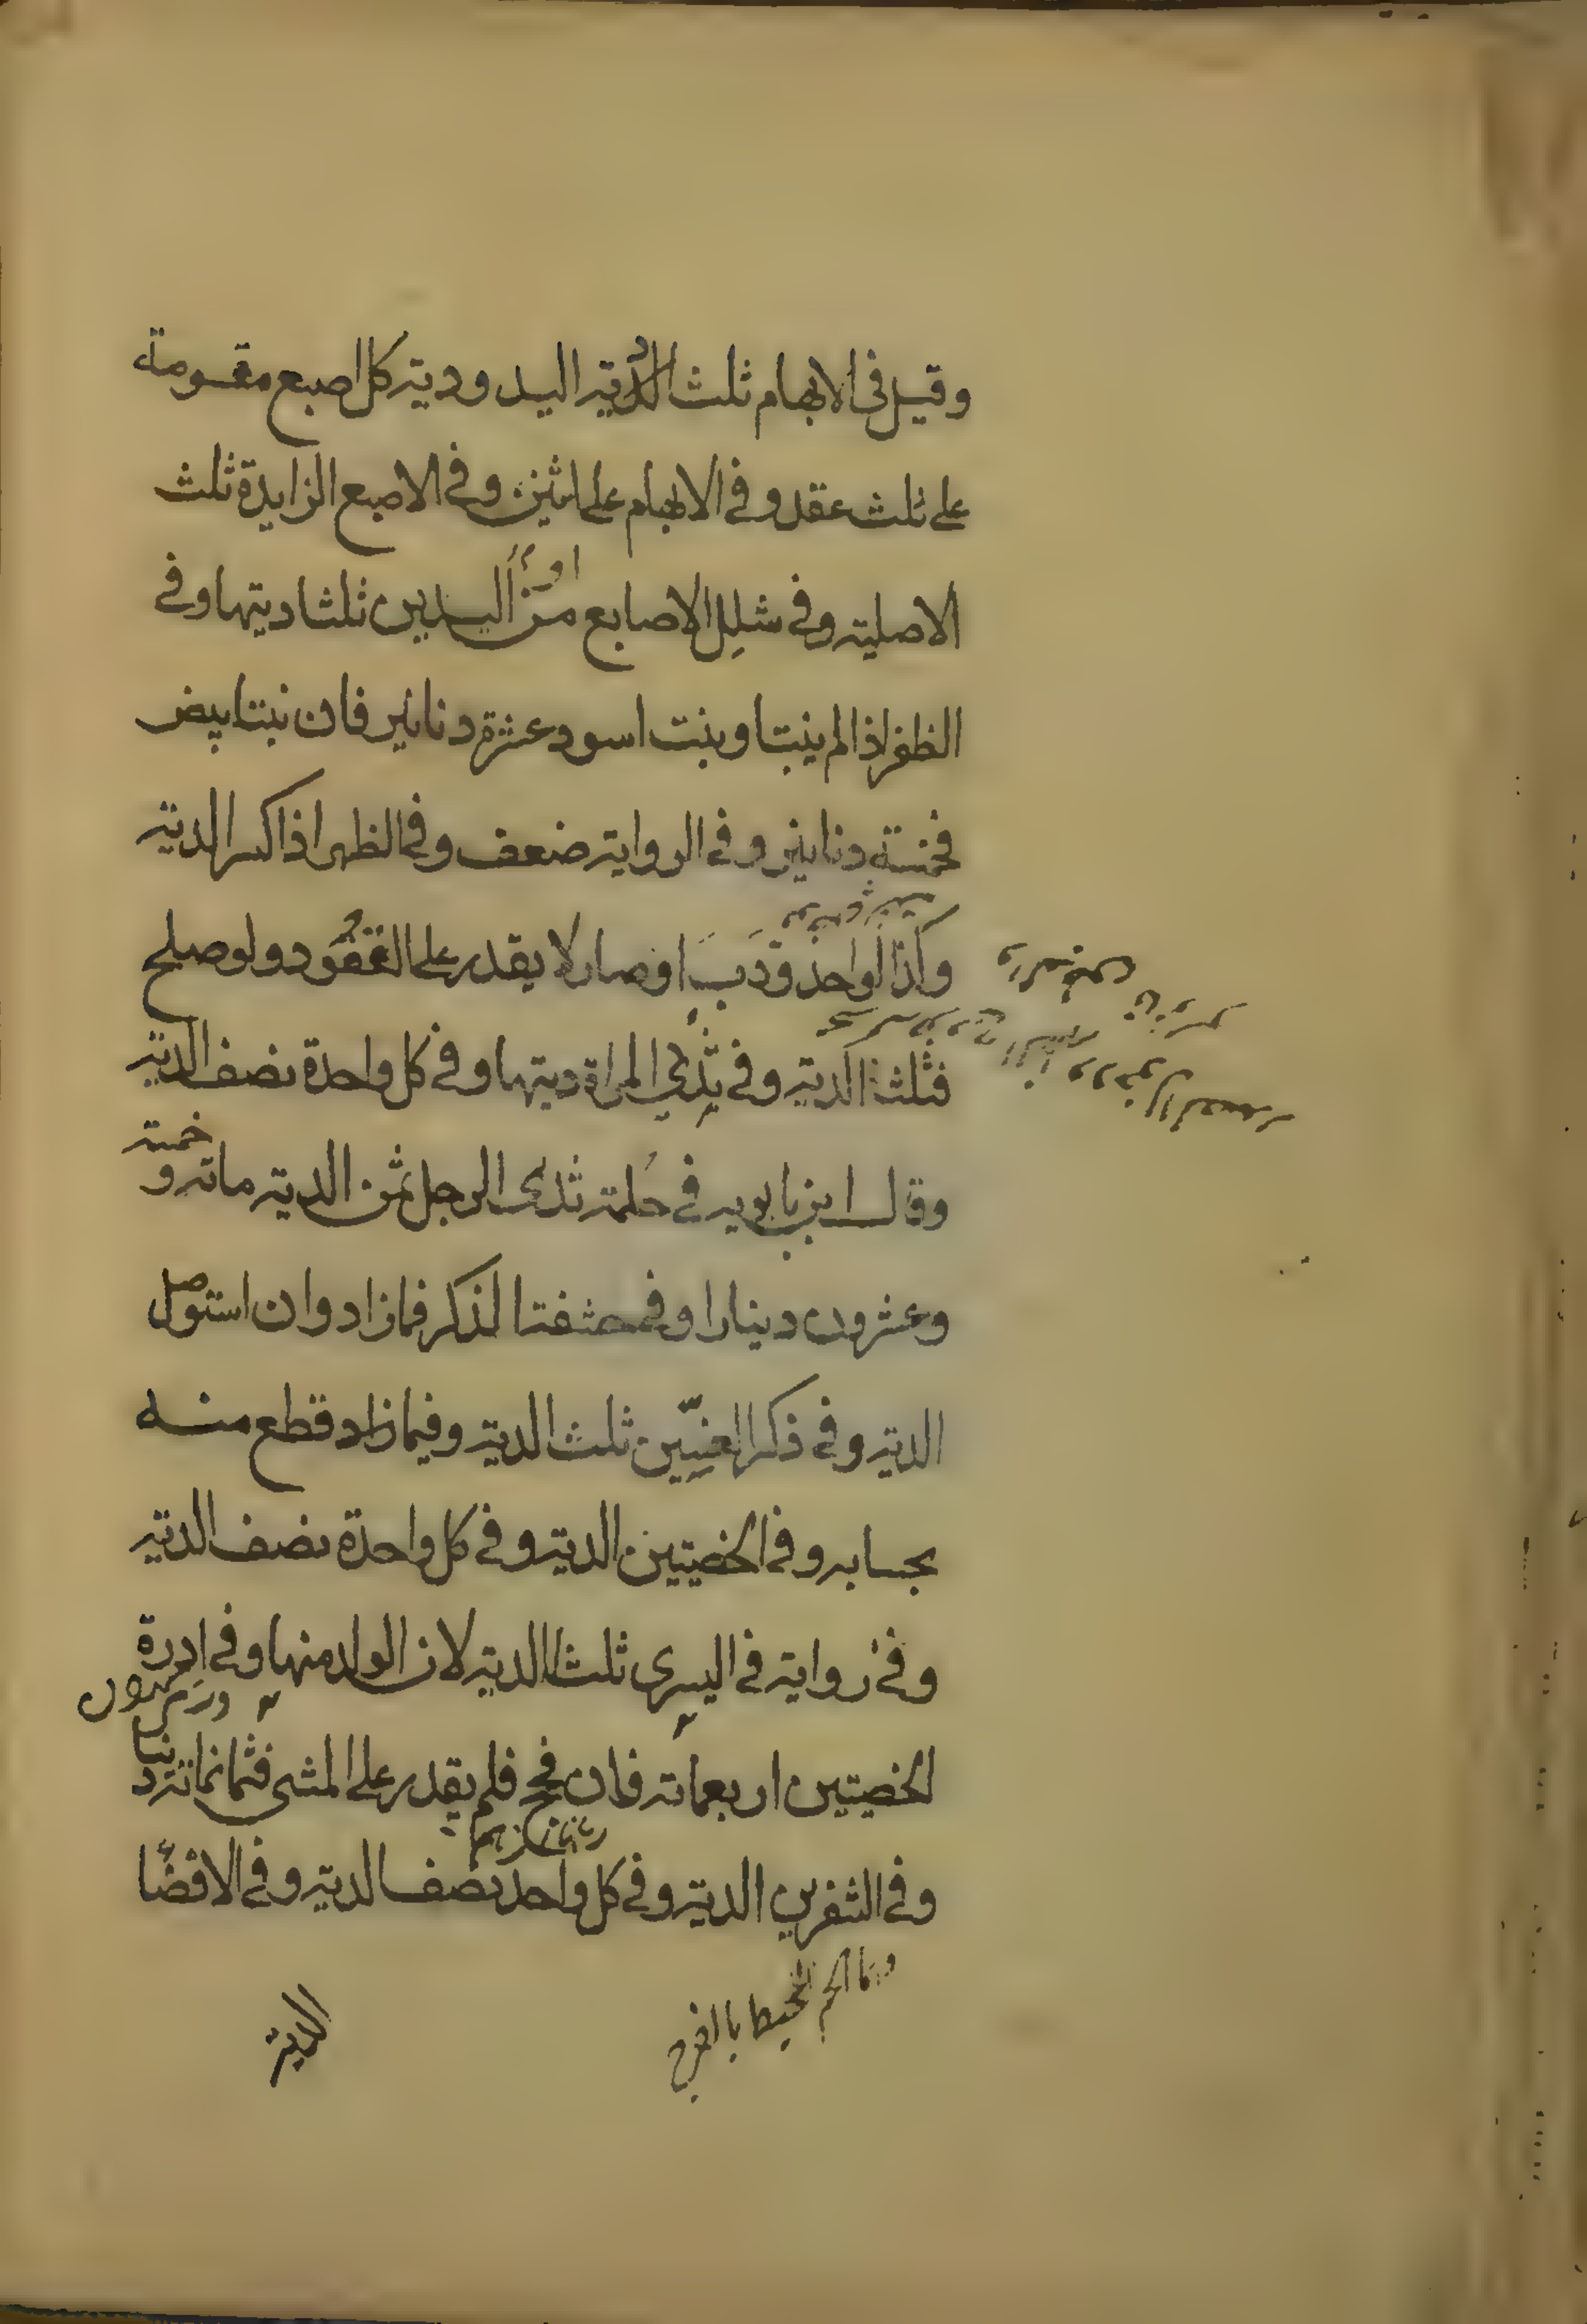 وقيل فى الابهام ثلث الدية اليد ودية كل اصبع مقسومة
على ثلث عقد وفى الابهام على اثنين وفى الاصبع الزايدة ثلث
الاصلية وفى شلل الاصابع من اليدين ثلثا ديتها وفى
الظفر اذا لم ينبت او ينبت اسود عشرة دنانير فان نبت ابيض
فخمسة دنانير وفى الرواية ضعف وفى الظهر اذا كسر الدية
وكذا لو احدودب او صار لا يقدر على القعود ولو صلح
فثلث الدية وفى ثدى المراة ديتها وفى كل واحدة نصف الدية
وقال ابن بابويه فى حلمة ثدى الرجل ثمن الدية ماته و
خمسة
وعشرون دينارا وفى حشفة الذكر فمازاد وان استوصل
الدية وفى ذكر العنين ثلث الدية وفيما زاد قطع منه
بحسابه وفى الخصيتين الدية وفى كل واحدة نصف الدية
وفى رواية فى اليسرى ثلثا الدية لان الولد منها وفى ادرة
الخصيتين اربعماته فان فحج فلم يقدر على المشى فثمانماته دينار
وفى الشفرين الدية وفى كل واحد نصف الدية وفى الافضا
اللحم المحيط بالفرج
الدية